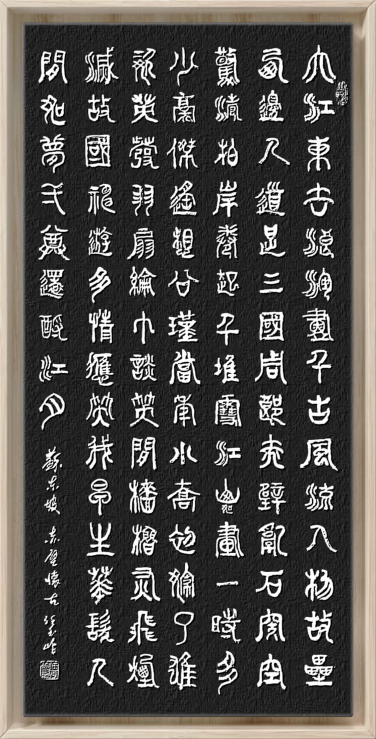 大江東去浪淘盡千古風流人物故壘
西邊人道是三國周郎赤壁亂石穿空
驚濤拍岸卷起千堆雪江山如畫一時多
少豪傑遙想公瑾當年小喬初嫁了雄
姿英發羽扇綸巾談笑間檣櫓灰飛煙
滅故國神遊多情應笑我早生華髮人
間如夢弌尊還酹江月
蘇東坡 赤壁懷古